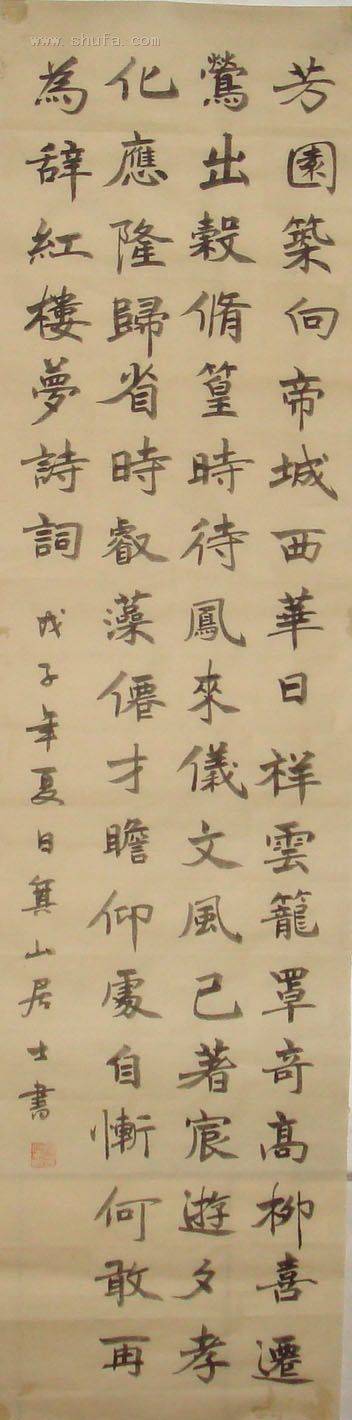 芳園築向帝城西華日祥雲籠罩奇高柳喜遷
鶯出穀脩篁時待鳳來儀文風已著宸遊夕孝
化應隆歸省時叡藻僊才瞻仰處自慚何敢再
為辭紅樓夢詩詞
戊子年夏日箕山居士書
www.shufa.com